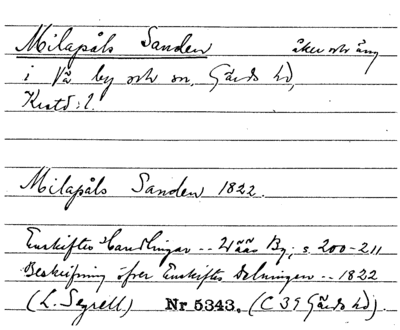 Milapåls Sanden åker och äng
i Vä by och sn, Gärds hd,
Krstd: l.
Milapåls Sanden 1822.
Enskiftes Handlingar -- Wää By; s. 200-211
Beskrifning öfver Enskiftes Delningen -- 1822
(L. Segrell) Nr 5343. (C 39 Gärds hd).